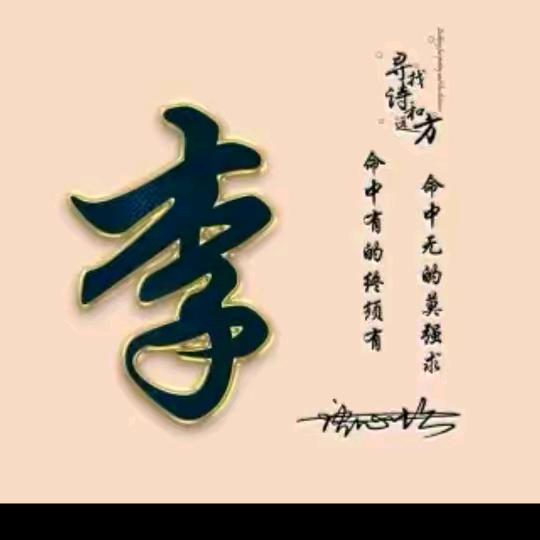 李
寻找
诗和
远方
命中有的终须有
命中无的莫强求